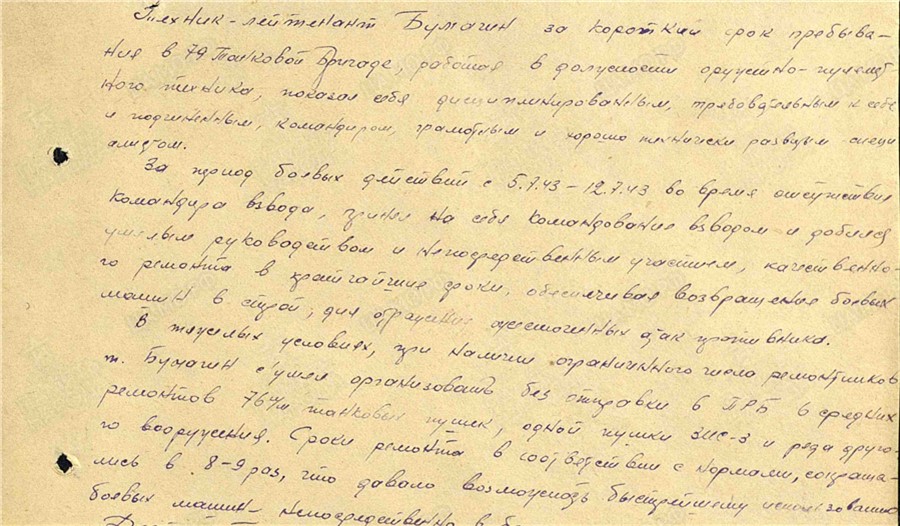 Техник-лейтенант Бумагин за короткий срок пребыва-
ния в 79 Танковой Бригаде, работая в должности оружейно-пулемет-
ного техника, показал себя дисциплинированным, требовательным к себе
и подчиненным, командиром, грамотным и хорошо технически развитым специ
алистом.
За период боевых действий с 5.7.43 – 12.7.43 во время отсутствия
командира взвода, принял на себя командование взводом и добился
умелым руководством и непосредственным участием, качественно-
го ремонта в кратчайшие сроки, обеспечивая возвращение боевых
машин в строй, для отражения ожесточенных атак противника.
В тяжелых условиях, при наличии ограниченного числа ремонтников
т. Бумагин сумел организовать без отправки в ПРБ 6 средних
ремонтов 76 м/м танковых пушек, одной пушки ЗИС-3 и ряда друго-
го вооружения. Сроки ремонта в соответствии с нормами, сокраща-
лись в 8-9 раз, что давало возможность быстрейшему использованию
боевых машин непосредственно в